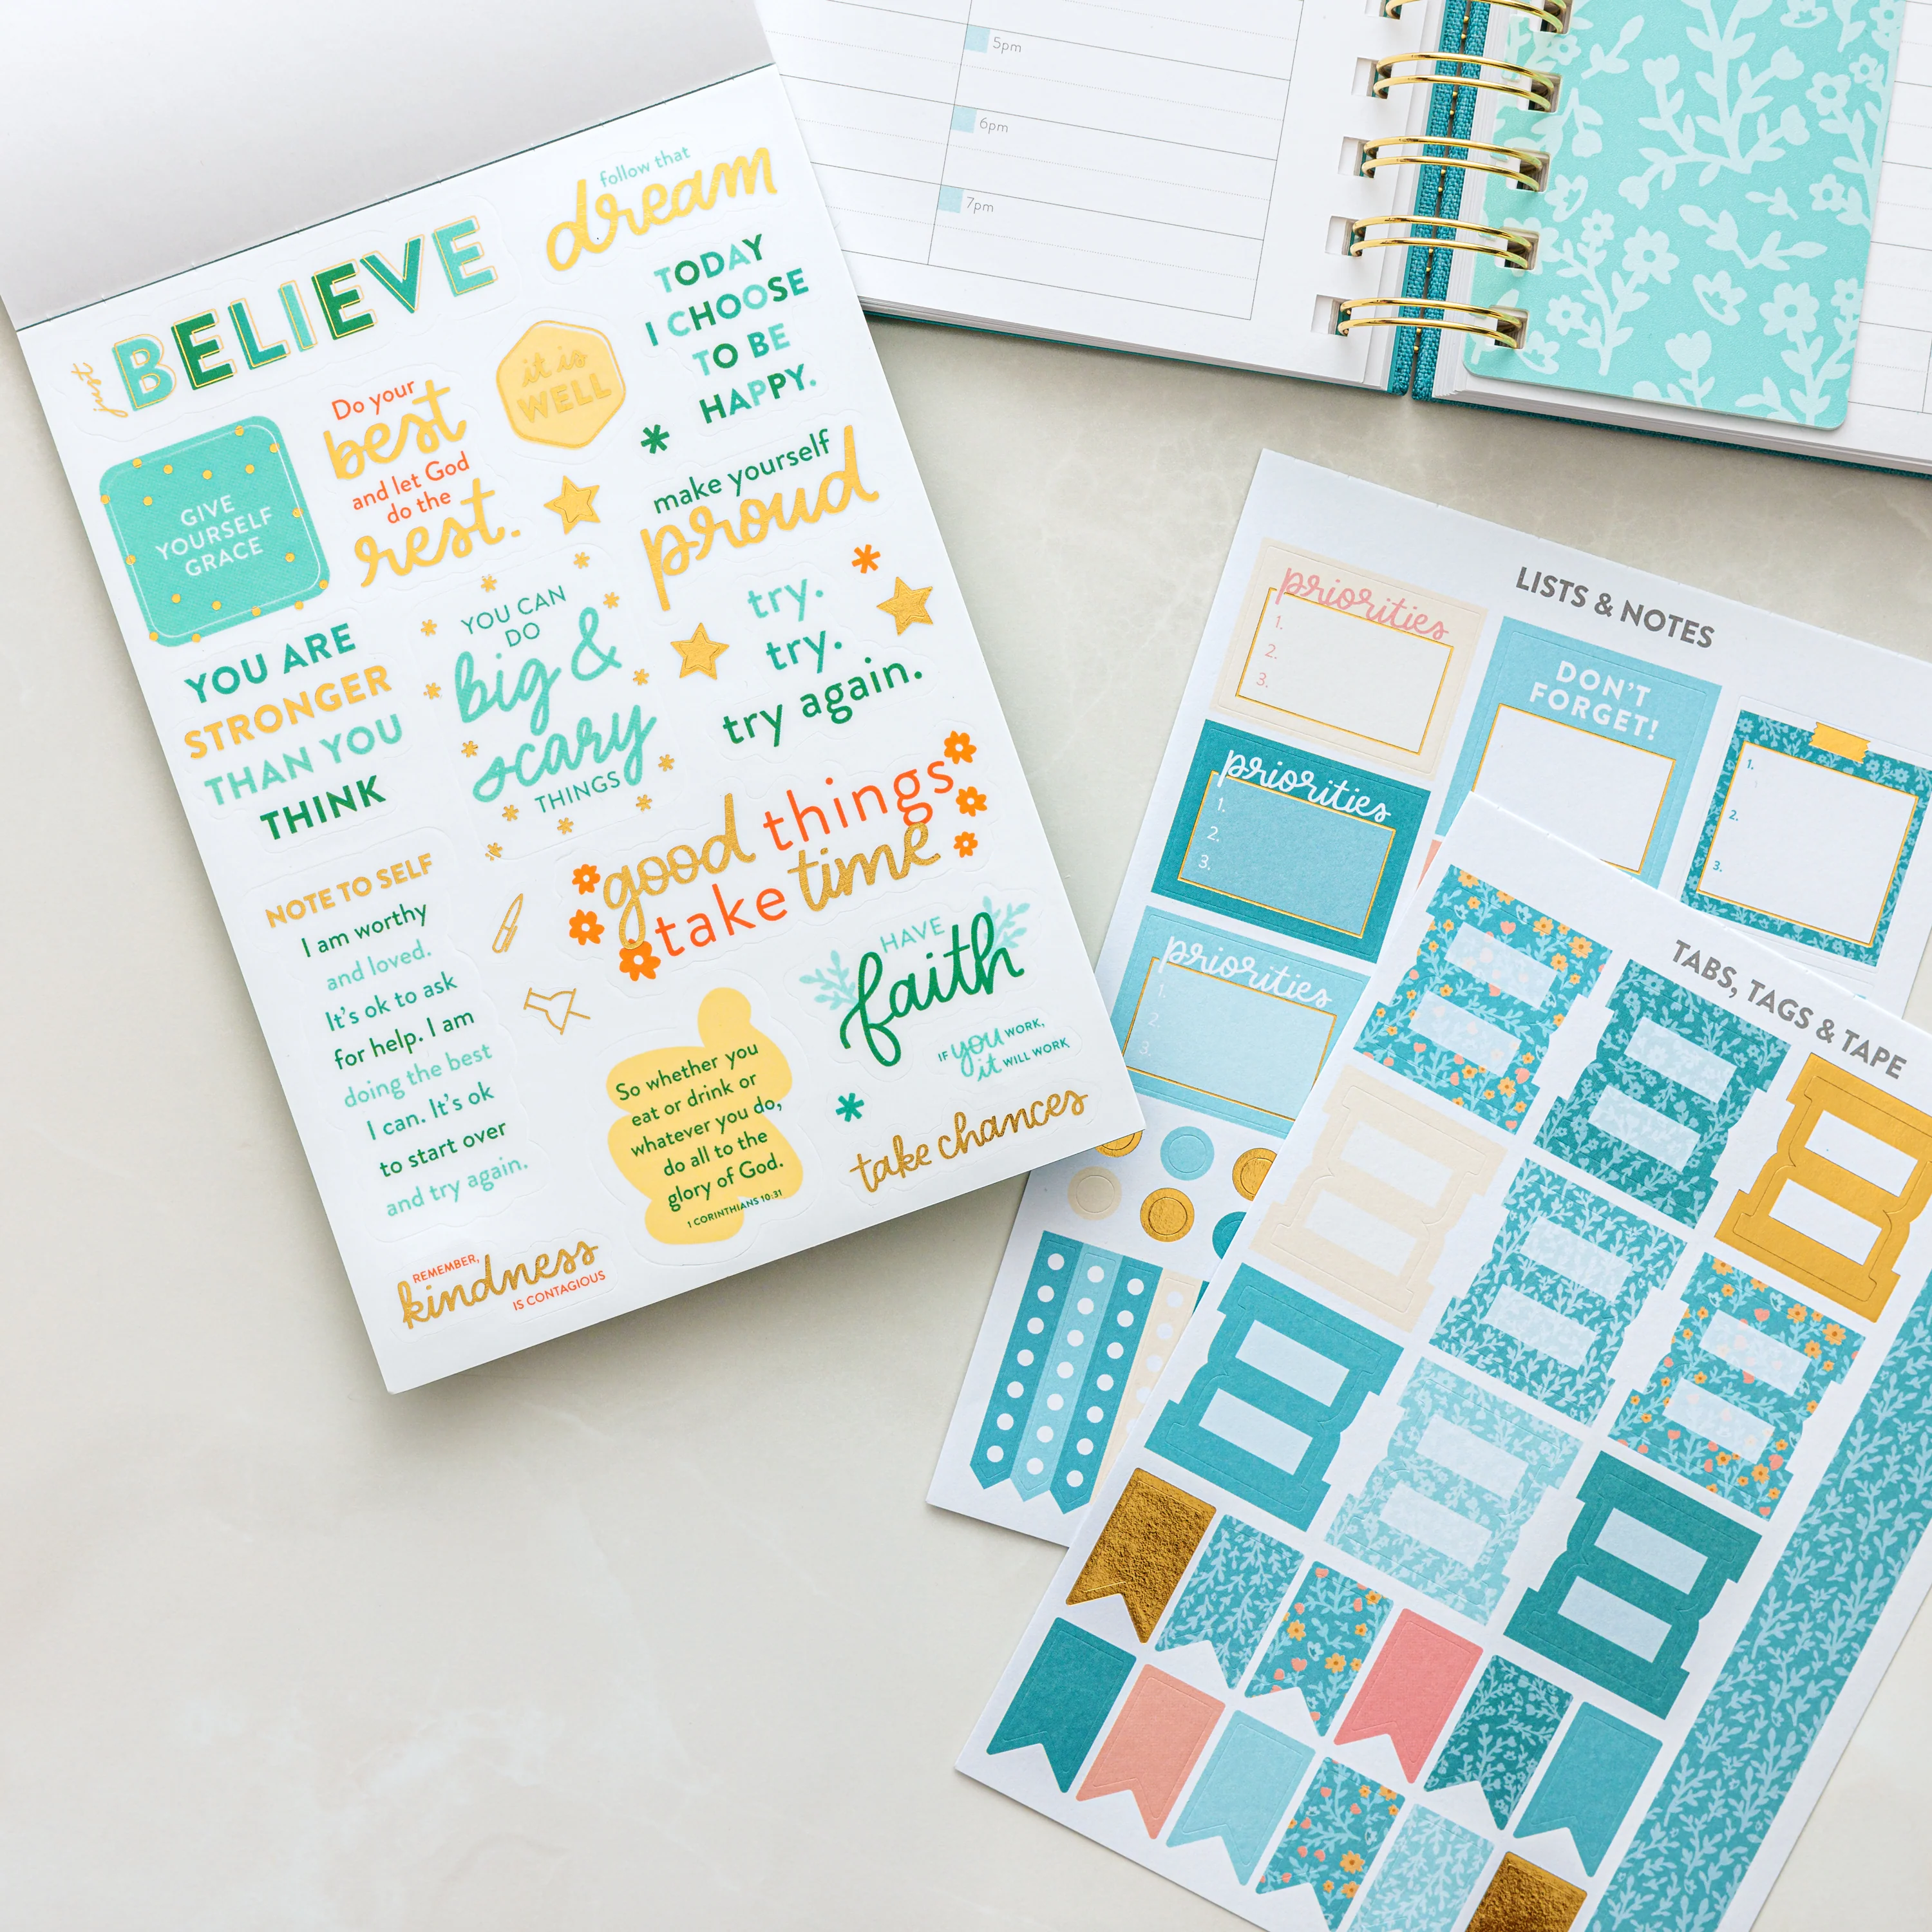 just
BELIEVE
follow that
dream
TODAY
I CHOOSE
TO BE
HAPPY.
it is
WELL
Do your
best
and let God
do the
rest.
GIVE
YOURSELF
GRACE
make yourself
proud
YOU CAN
DO
big &
scary
THINGS
try.
try.
try again.
YOU ARE
STRONGER
THAN YOU
THINK
good things
take time
NOTE TO SELF
I am worthy
and loved.
It's ok to ask
for help. I am
doing the best
I can. It's ok
to start over
and try again.
HAVE
faith
IF you WORK,
it WILL WORK
So whether you
eat or drink or
whatever you do,
do all to the
glory of God.
1 CORINTHIANS 10:31
take chances
REMEMBER,
kindness
IS CONTAGIOUS
5pm
6pm
7pm
LISTS & NOTES
priorities
1.
2.
3.
DON'T
FORGET!
1.
2.
3.
priorities
1.
2.
3.
priorities
1.
2.
3.
TABS, TAGS & TAPE